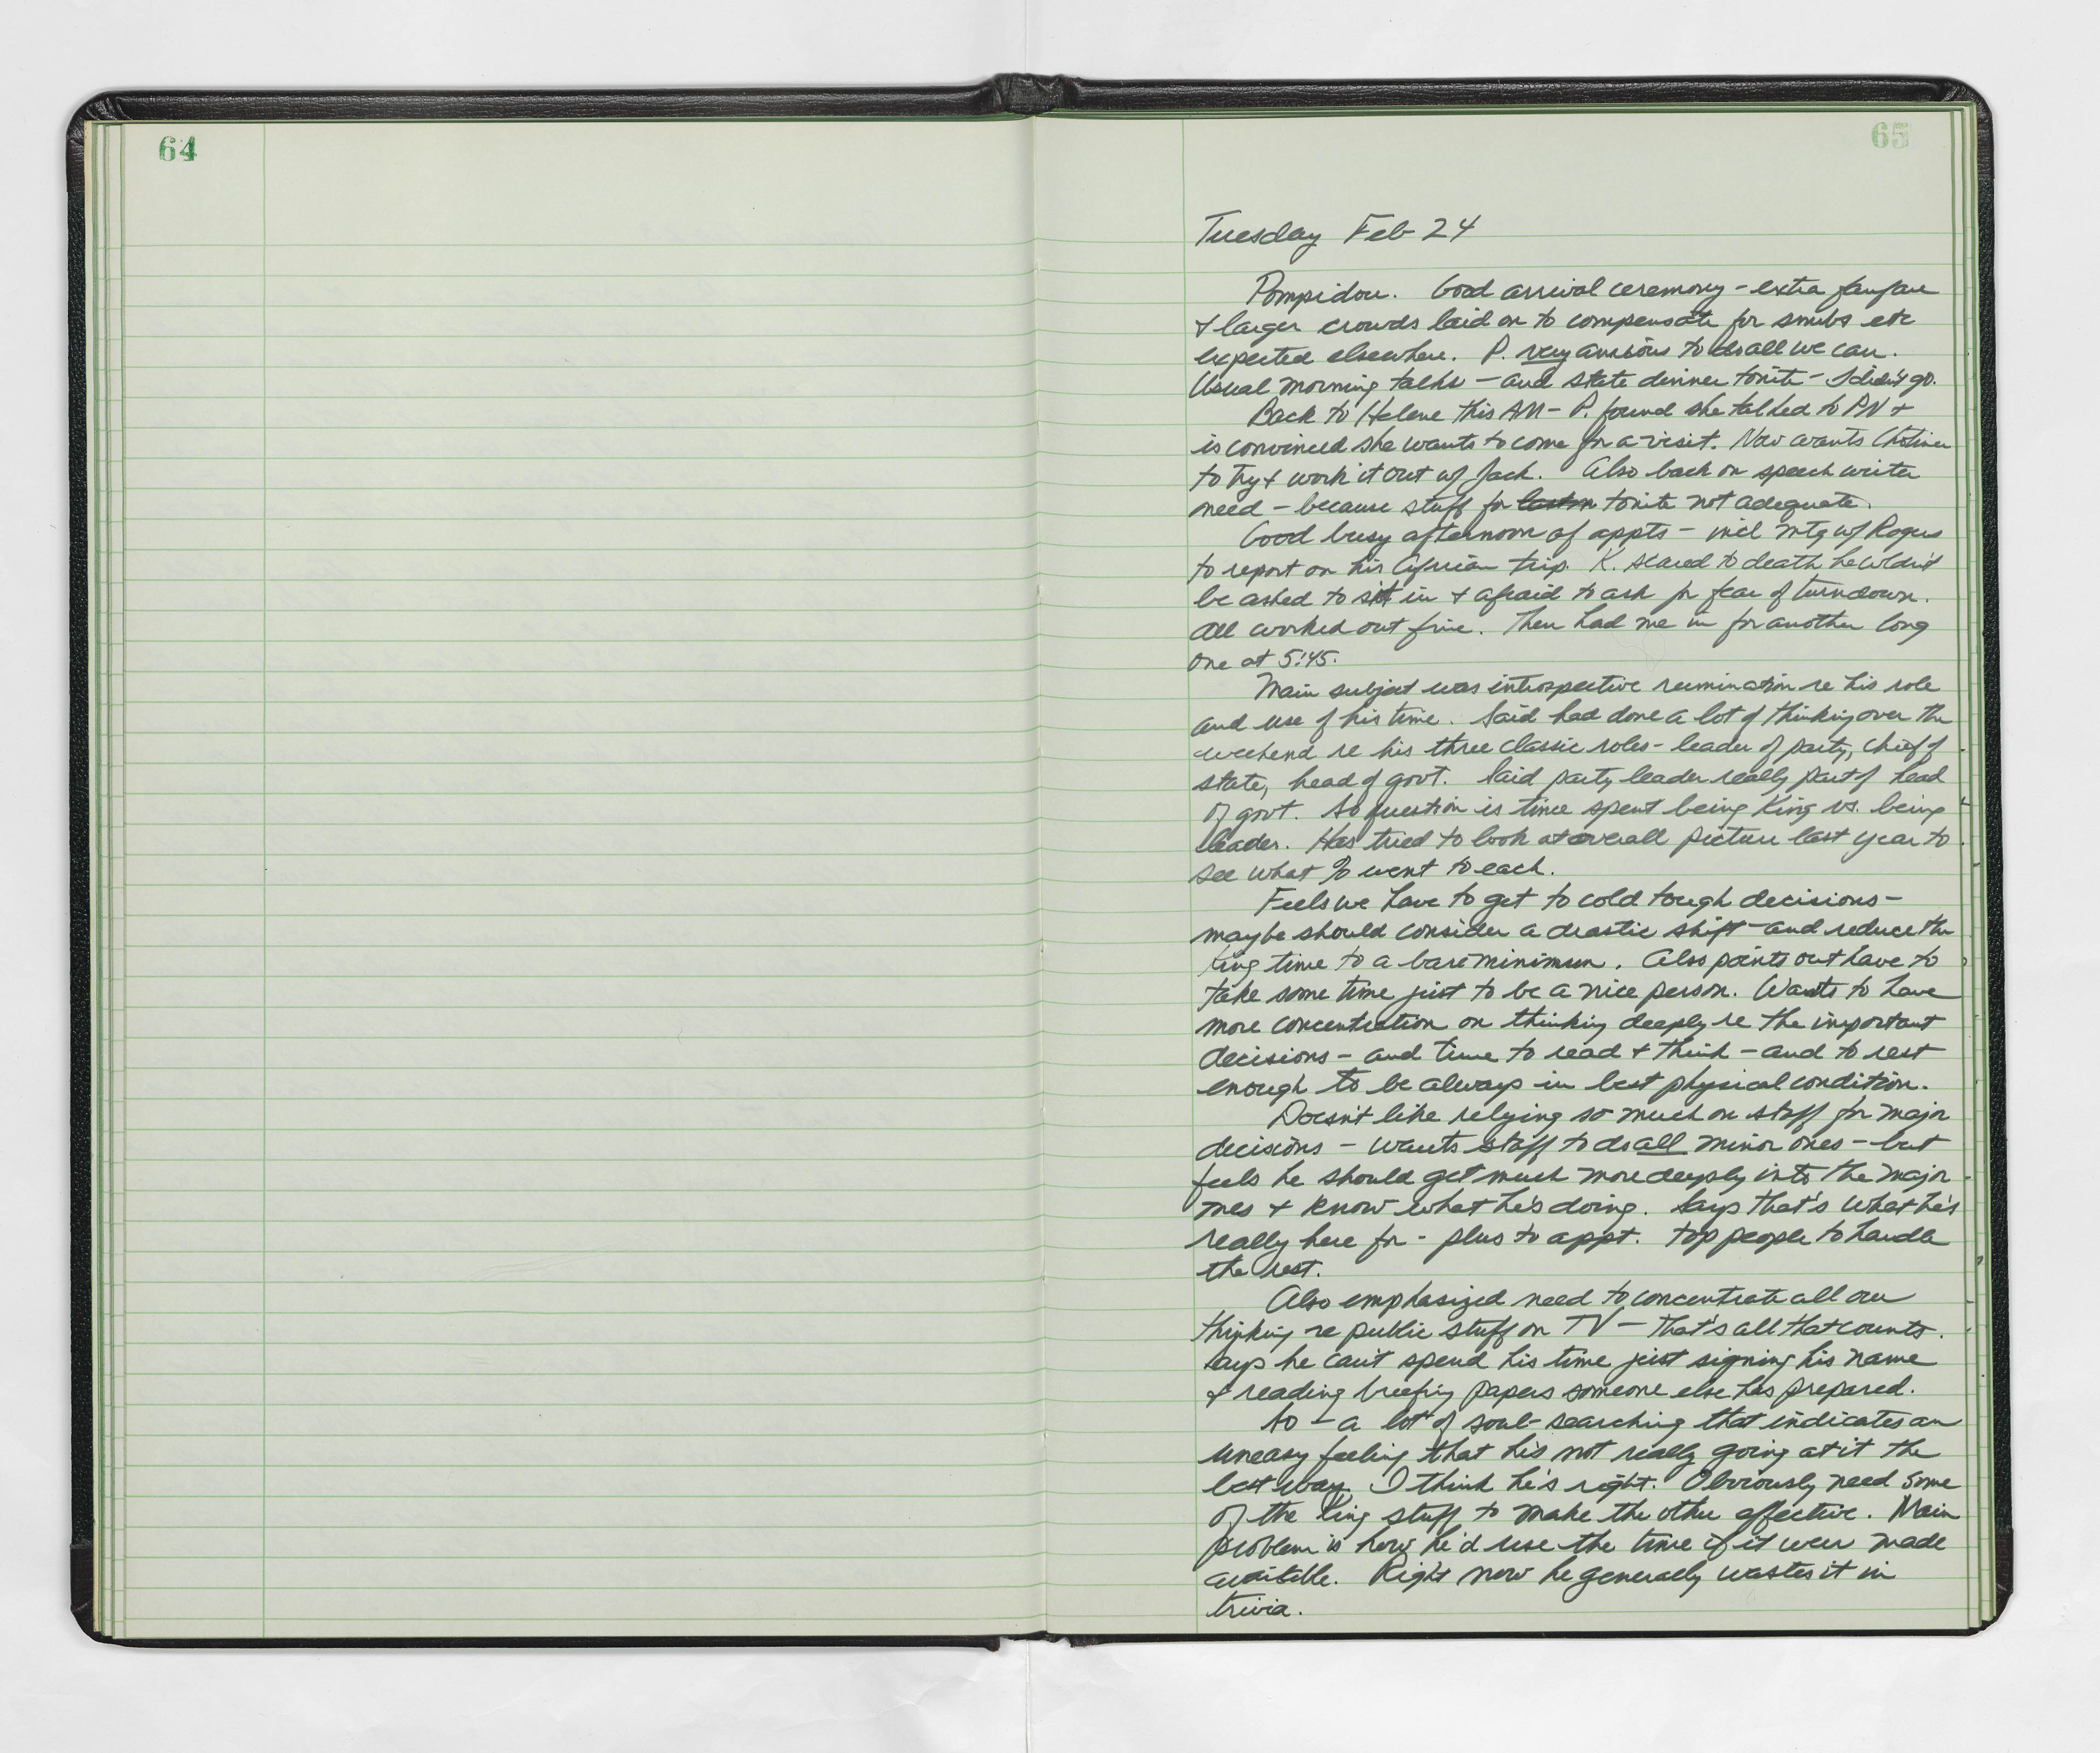 64
65
Tuesday Feb 24
Pompidou. Good arrival ceremony - extra fanfare
& larger crowds laid on to compensate for snubs etc
expected elsewhere. P. very anxious to do all we can.
Usual morning talks - and state dinner tonite - I didn't go.
Back to Helene this AM - P. found she talked to PN &
is convinced she wants to come for a visit. Now wants Chotiner
to try & work it out w/ Jack. Also back on speech writer
need - because stuff for tonite not adequate.
Good busy afternoon of appts - incl mtg w/ Rogers
to report on his African trip. K. scared to death he wldn't
be asked to sit in & afraid to ask for fear of turndown.
All worked out fine. Then had me in for another long
one at 5:45.
Main subject was introspective rumination re his role
and use of his time. Said had done a lot of thinking over the
weekend re his three classic roles - leader of party, chief of
state, head of govt. Said party leader really part of head
of govt. So question is time spent being King vs. being
leader. Has tried to look at overall picture last year to
see what % went to each.
Feels we have to get to cold tough decisions -
maybe should consider a drastic shift - and reduce the
King time to a bare minimum. Also points out have to
take some time just to be a nice person. Wants to have
more concentration on thinking deeply re the important
decisions - and time to read & think - and to rest
enough to be always in best physical condition.
Doesn't like relying so much on staff for major
decisions - wants staff to do all minor ones - but
feels he should get much more deeply into the major
ones & know what he's doing. Says that's what he's
really here for - plus to appt. top people to handle
the rest.
Also emphasized need to concentrate all our
thinking re public stuff on TV - that's all that counts.
Says he can't spend his time just signing his name
& reading briefing papers someone else has prepared.
So - a lot of soul-searching that indicates an
uneasy feeling that he's not really going at it the
best way. I think he's right. Obviously need some
of the King stuff to make the other effective. Main
problem is how he'd use the time if it were made
available. Right now he generally wastes it in
trivia.